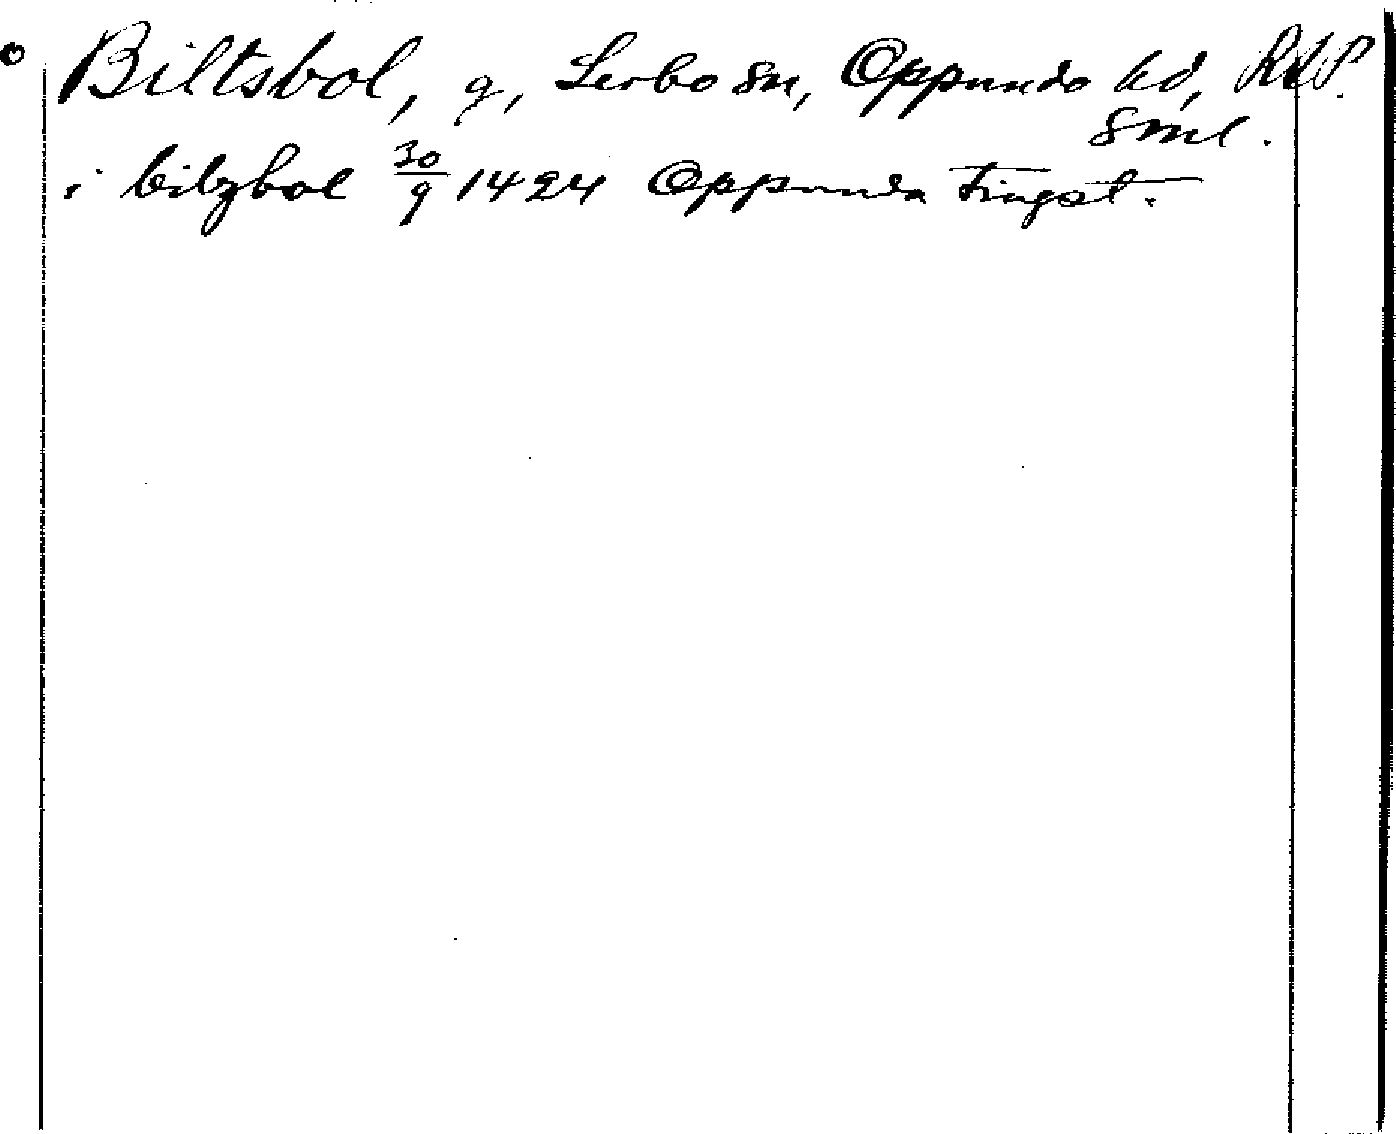 Biltsbol, g, Lerbo sn, Oppunda hd, RAP.
Sml.
i bilzbol 30/9 1424 Oppunda tingst.